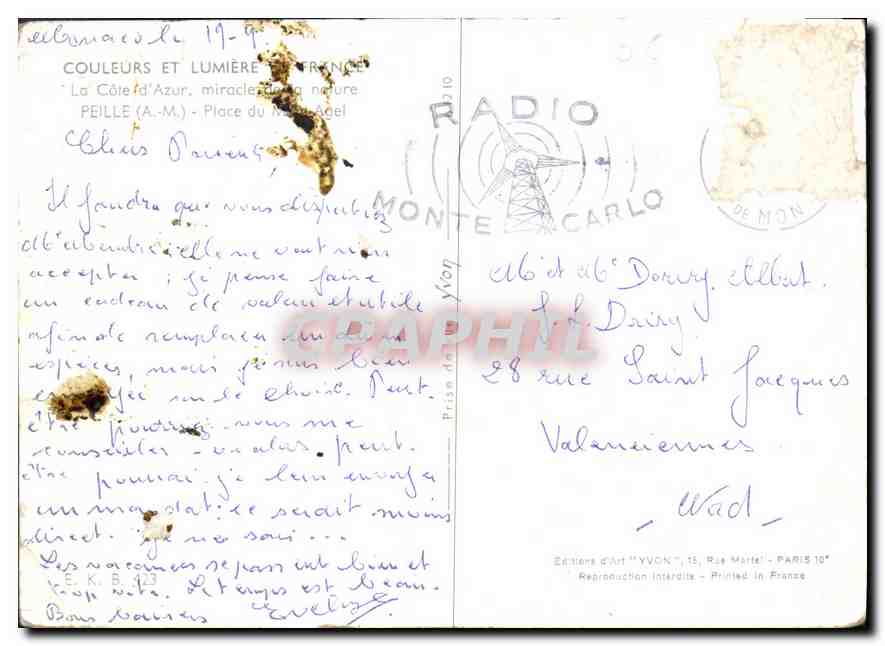 Monaco le 19-9
COULEURS ET LUMIÈRE DE FRANCE
La Côte d'Azur, miracle de la nature
PEILLE (A.-M.) - Place du Mont Agel
Chers Parents
Il faudra que vous disputiez
elle ne veut rien
accepter ; j'ai pensé faire
un cadeau de valeur et utile
afin de remplacer un don
espèces, mais je suis bien
ennuyée sur le choix. Peut-
être pourriez-vous me
conseiller - ou alors peut-
être pourrai-je leur envoyer
un mandat : ce serait moins
direct. je ne sais ...
Les vacances se passent bien et
trop vite. Le temps est beau.
Bons baisers
E. K. B. 423
RADIO
MONTE CARLO
DE MON
Prise de vue Yvon
10
CPRAPHIL
Mr et Me Albert.
28 rue Saint Jacques
Valenciennes
- Nord -
Editions d'Art "YVON", 15, Rue Martel - PARIS 10e
Reproduction Interdite - Printed in France